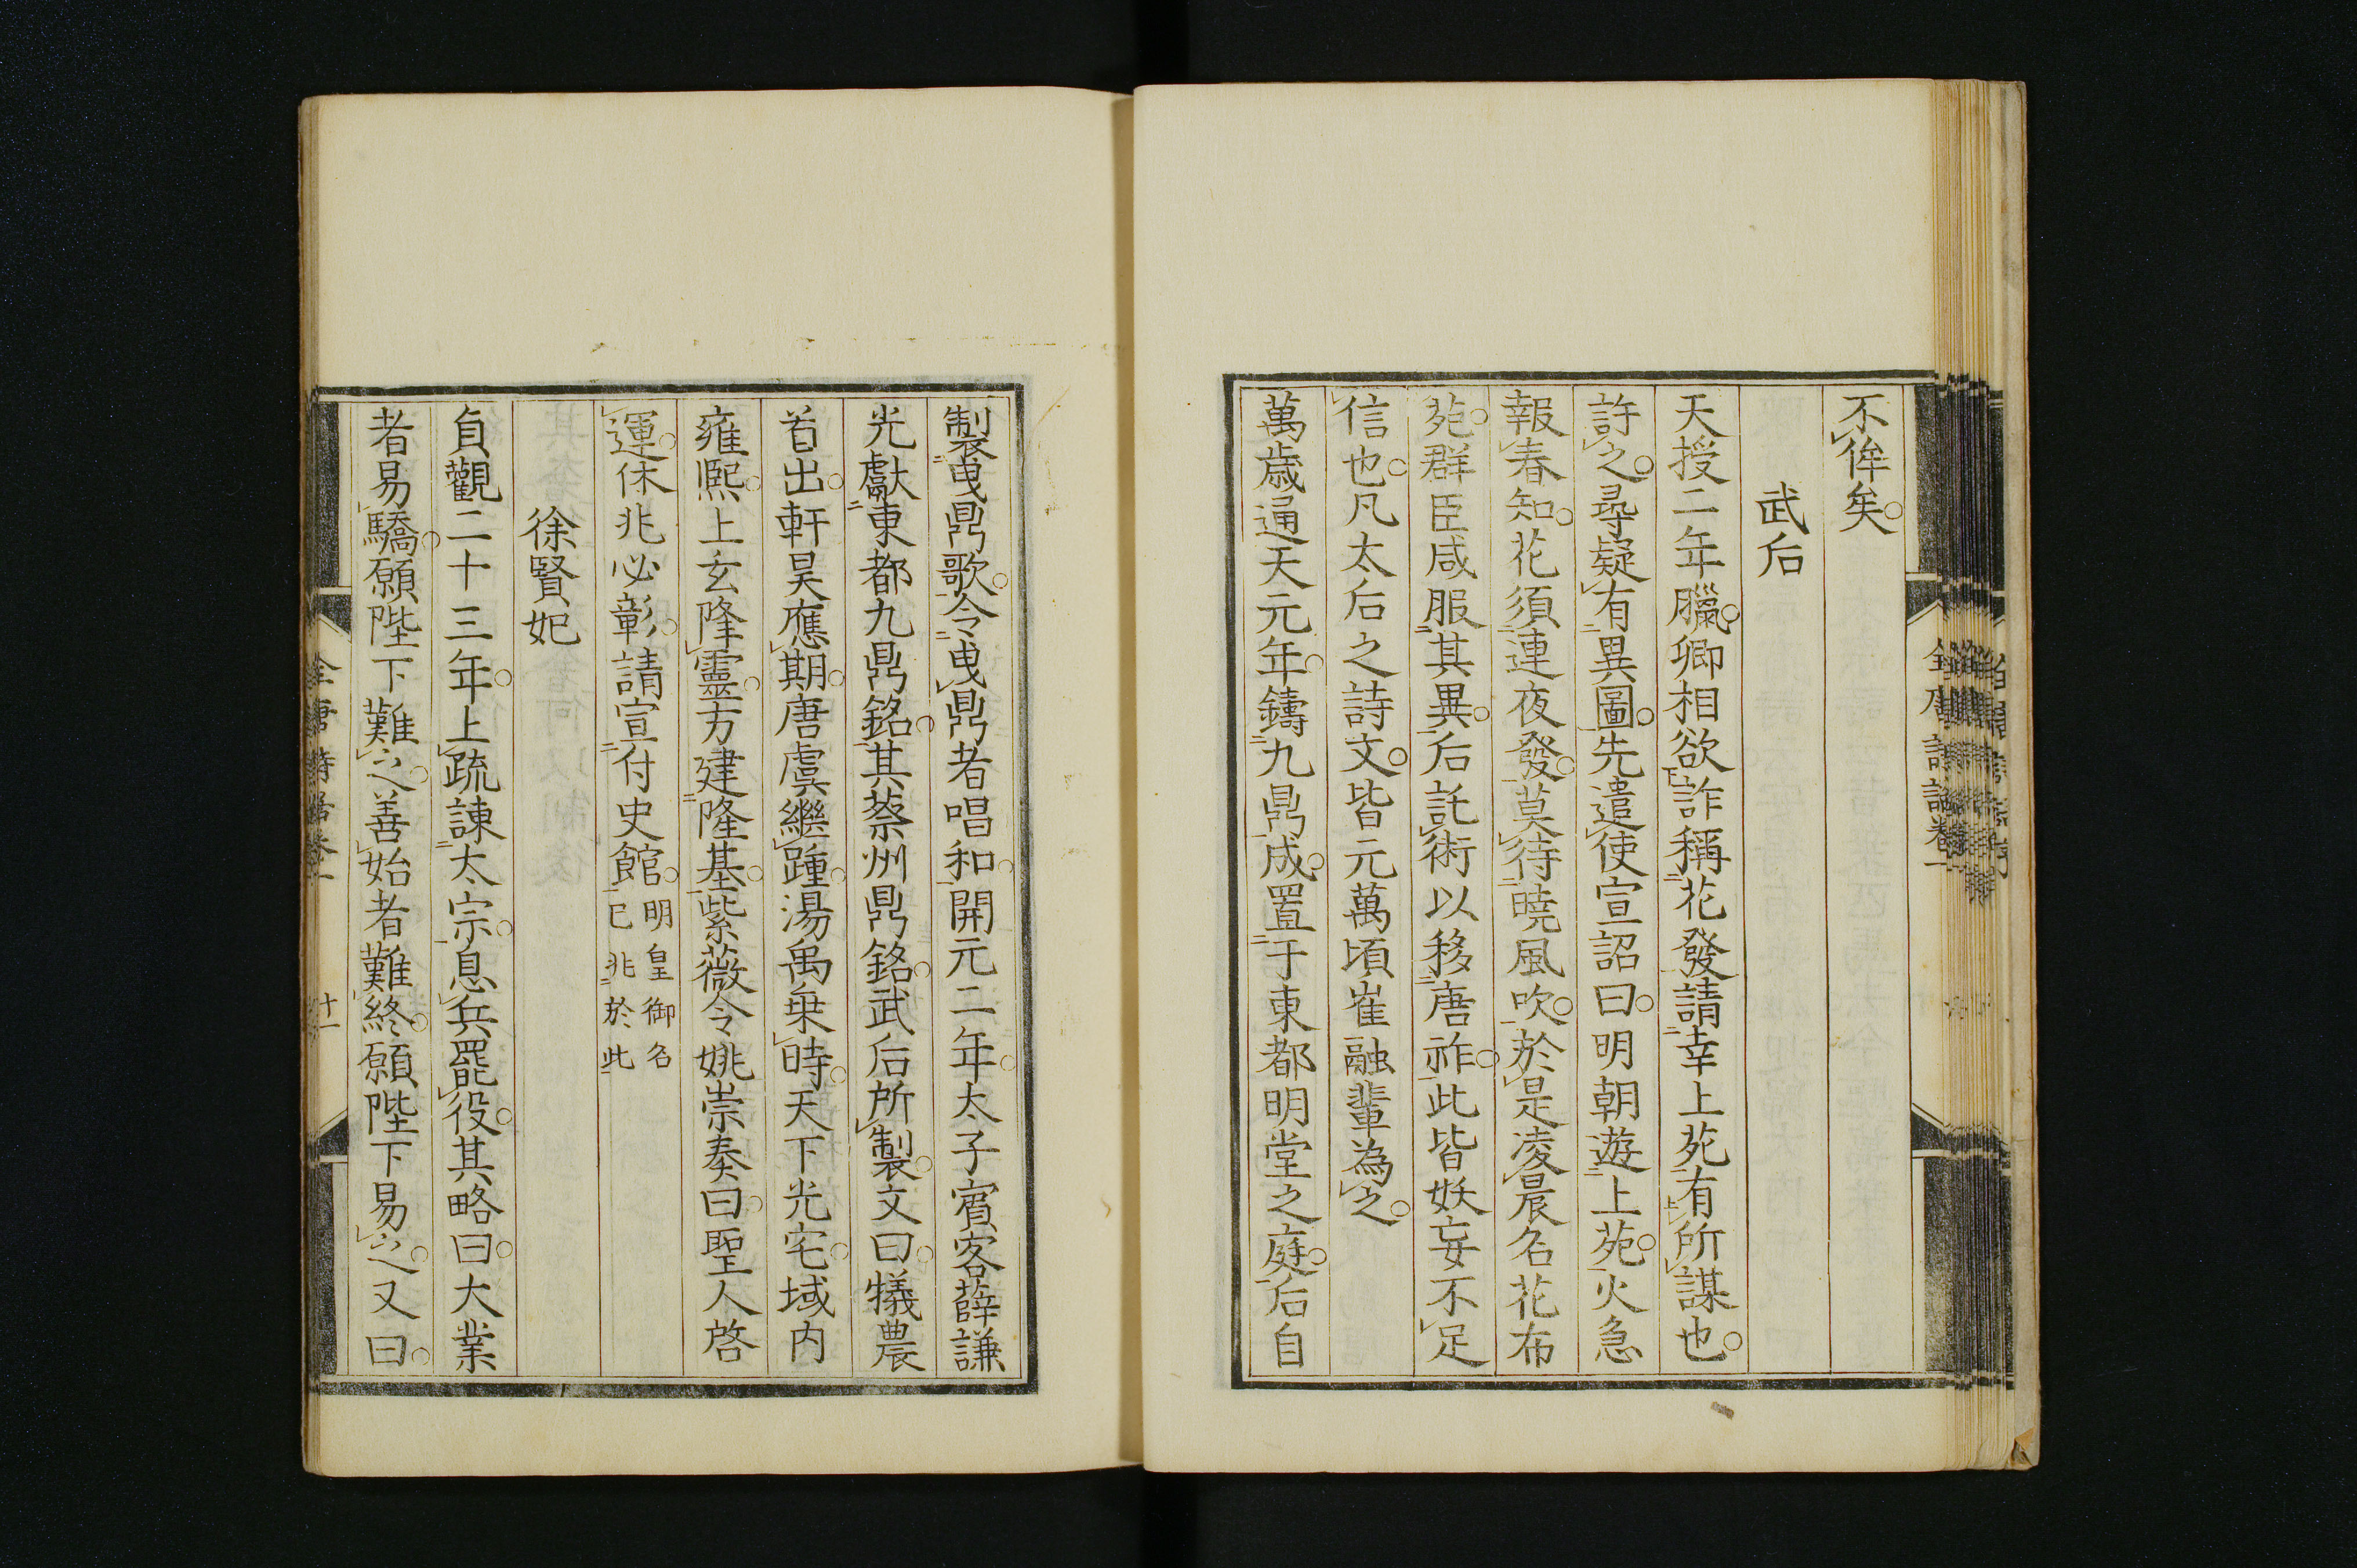 不侔矣
武后
天授二年臘卿相欲詐稱花發請幸上苑有所謀也
許之尋疑有異圖先遣使宣詔曰明朝遊上苑火急
報春知花須連夜發莫待曉風吹於是凌晨名花布
苑群臣咸服其異后託術以移唐祚此皆妖妄不足
信也凡太后之詩文皆元萬頃崔融輩為之
萬歲通天元年鑄九鼎成置于東都明堂之庭后自
製曳鼎歌令曳鼎者唱和開元二年太子賓客薛謙
光獻東都九鼎銘其蔡州鼎銘武后所製文曰犧農
首出軒昊應期唐虞繼踵湯禹乗時天下光宅域内
雍熙上玄降靈方建隆基紫薇令姚崇奏曰聖人啓
運休兆必彰請宣付史館明皇御名已兆於此
徐賢妃
貞觀二十三年上疏諫太宗息兵罷役其略曰大業
者易驕願陛下難之善始者難終願陛下易之又曰
全唐詩話卷一
十一